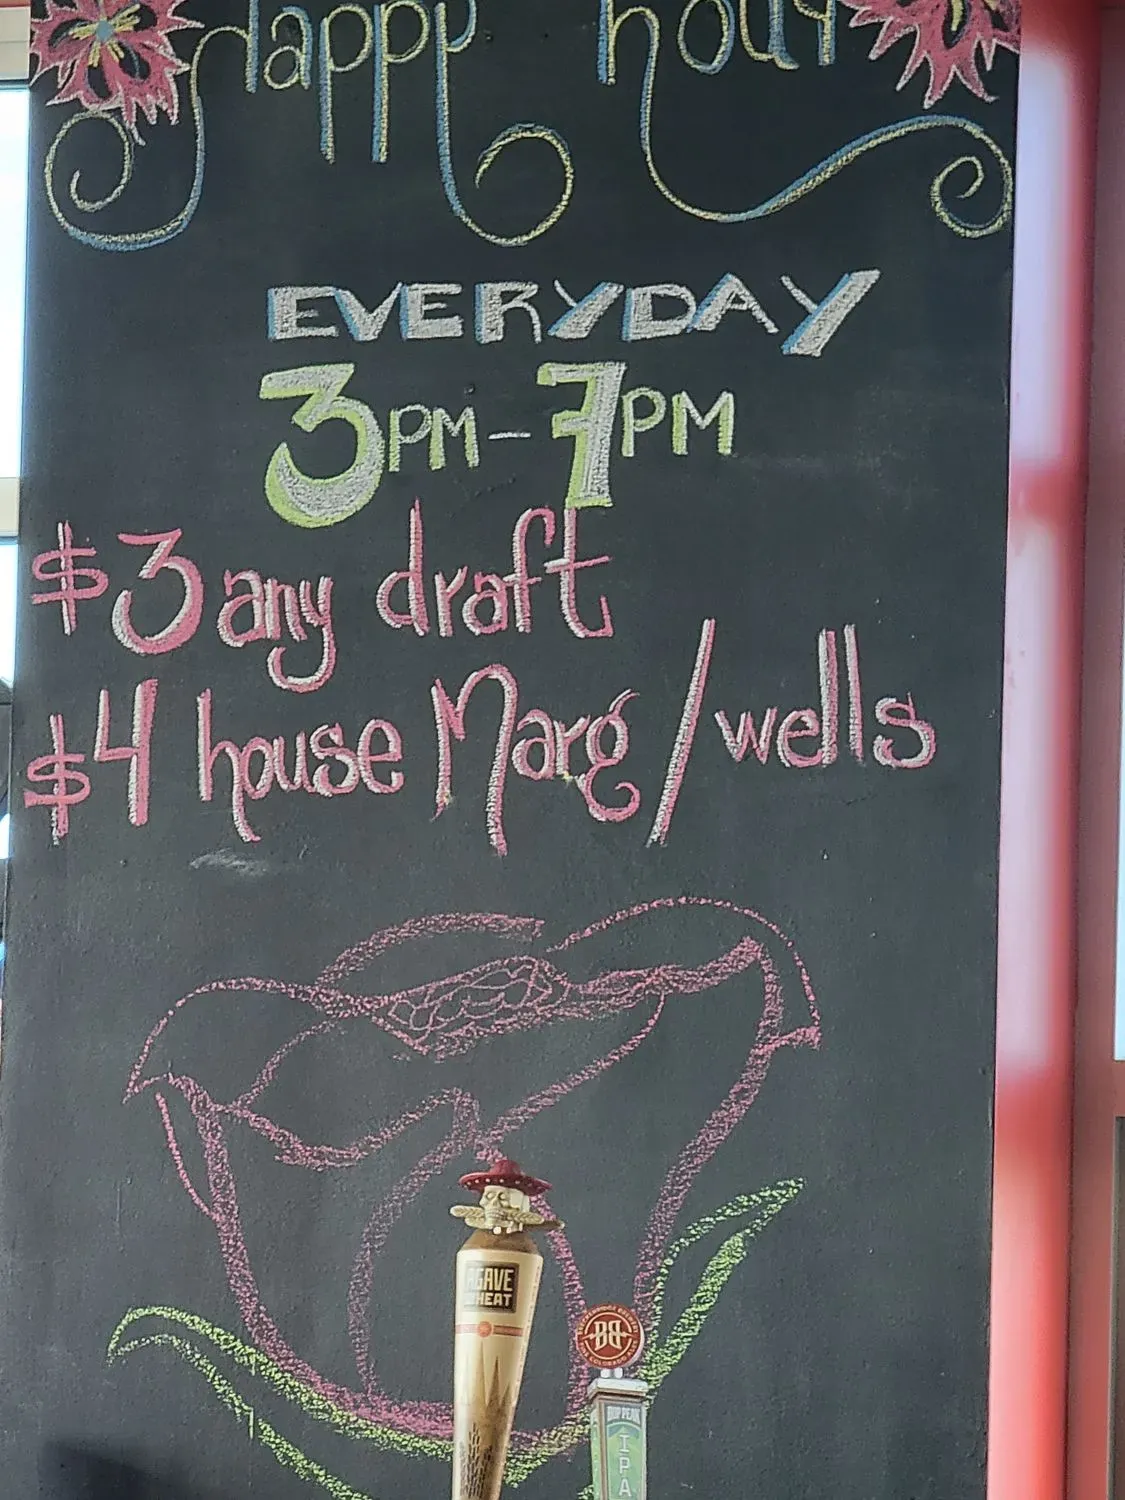 Happy hour
EVERYDAY
3PM-7PM
$3 any draft
$4 house Marg/wells
AGAVE
WHEAT
BB
IPA